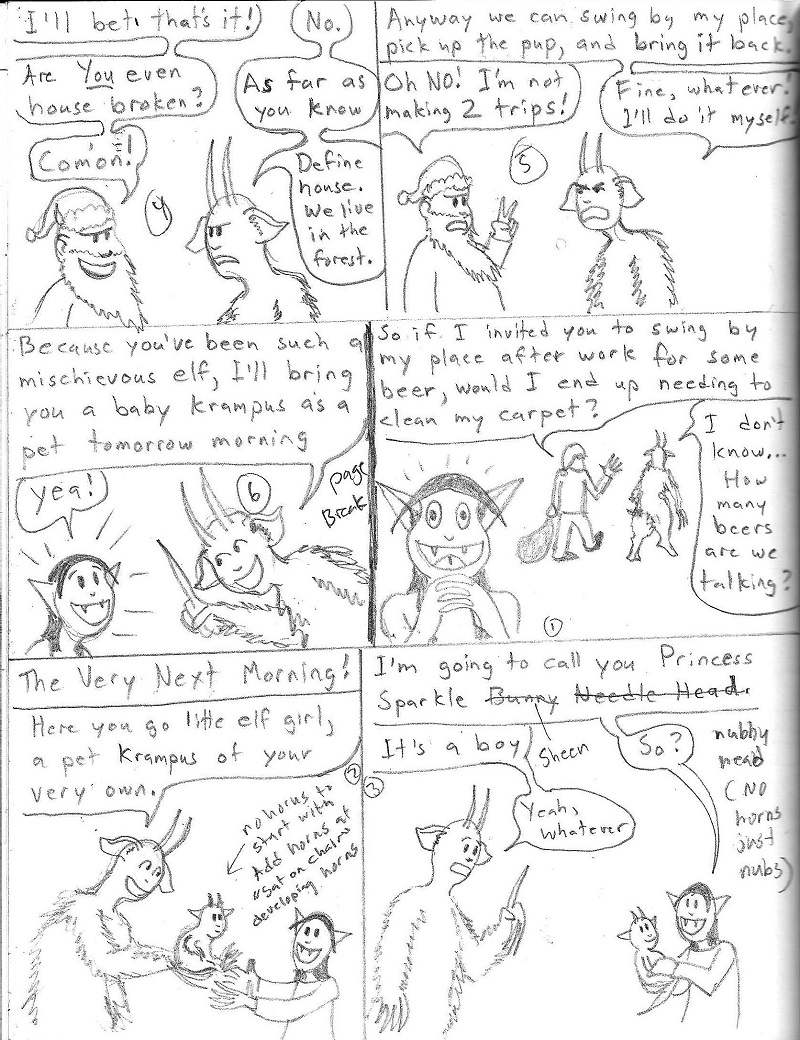 I'll bet that's it!
No.
Are You even
house broken?
As far as
you know
Com'on!
Define
house.
We live
in the
forest.
4
Anyway we can swing by my place,
pick up the pup, and bring it back.
Oh NO! I'm not
making 2 trips!
Fine, whatever!
I'll do it myself.
5
Because you've been such a
mischievous elf, I'll bring
you a baby Krampus as a
pet tomorrow morning
Yea!
6
page
Break
So if I invited you to swing by
my place after work for some
beer, would I end up needing to
clean my carpet?
I don't
know...
How
many
beers
are we
talking?
1
The Very Next Morning!
Here you go little elf girl,
a pet Krampus of your
very own.
2
no horns to
start with
Add horns at
"sat on chairs
developing horns
I'm going to call you Princess
Sparkle Bunny Needle Head.
Sheen
It's a boy
So?
Yeah,
whatever
3
nubby
head
(No
horns
just
nubs)